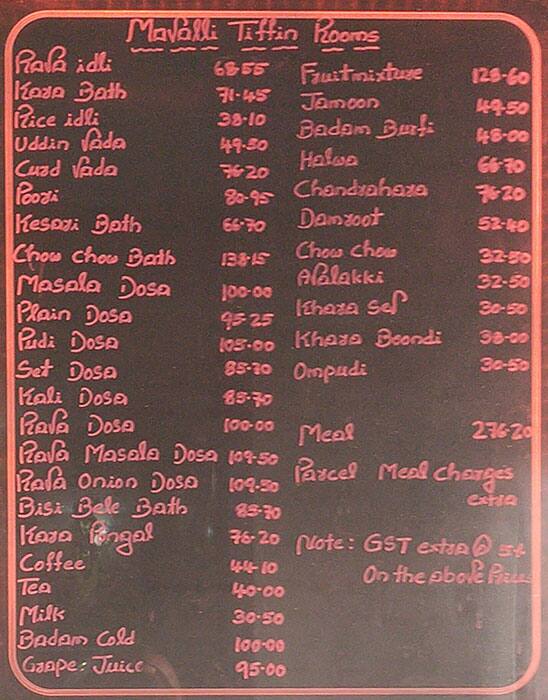 Mavalli Tiffin Rooms
Rava idli 68-55
Kara Bath 71-45
Rice idli 38-10
Uddin Vada 49-50
Curd Vada 76-20
Poori 80-95
Kesari Bath 66-70
Chow Chow Bath 138-15
Masala Dosa 100-00
Plain Dosa 95-25
Pudi Dosa 105-00
Set Dosa 85-70
Kali Dosa 85-70
Rava Dosa 100-00
Rava Masala Dosa 109-50
Rava Onion Dosa 109-50
Bisi Bele Bath 85-70
Kara Pongal 76-20
Coffee 44-10
Tea 40-00
Milk 30-50
Badam Cold 100-00
Grape: Juice 95-00
Fruitmixture 128-60
Jamoon 49-50
Badam Burfi 48-00
Halwa 66-70
Chandrahara 76-20
Damroot 52-40
Chow Chow 32-50
Avalakki 32-50
Khara Sev 30-50
Khara Boondi 38-00
Ompudi 30-50
Meal 276-20
Parcel Meal Charges
extra
Note: GST extra @ 5%
On the above Prices